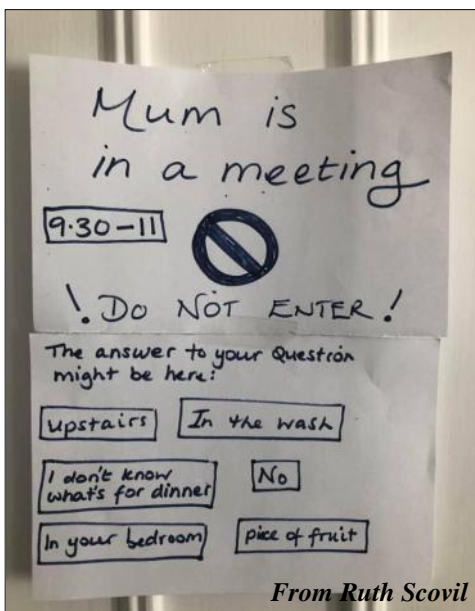 Mum is
in a meeting
9.30-11
! DO NOT ENTER !
The answer to your Question
might be here:
upstairs In the wash
I don't know
what's for dinner No
In your bedroom piece of fruit
From Ruth Scovil